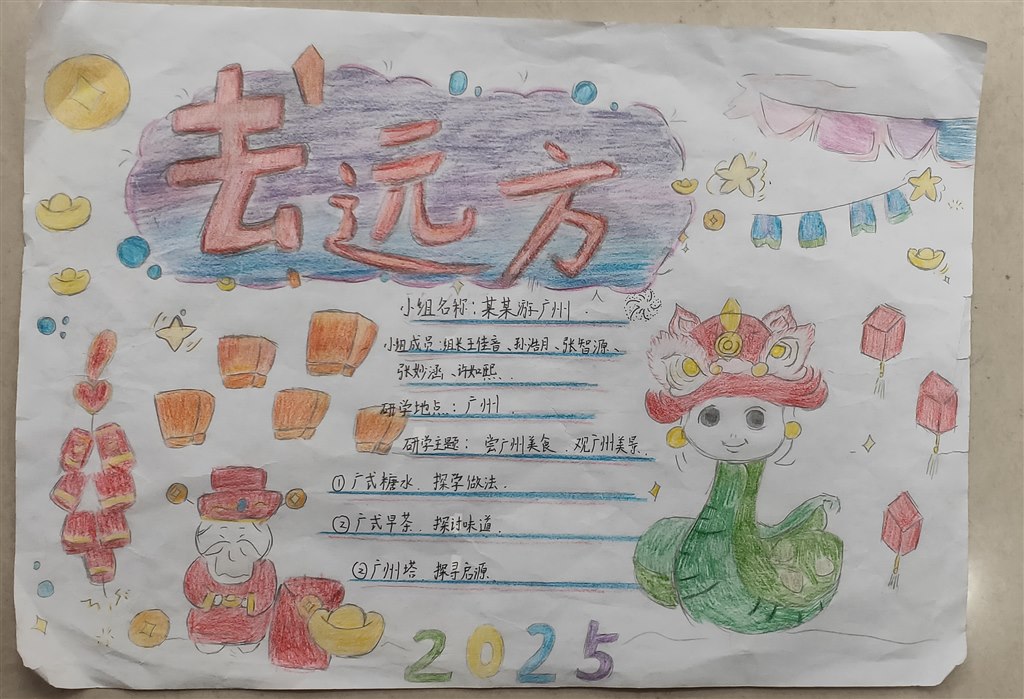 去远方
小组名称：某某游广州.
小组成员：组长王佳音、孙浩月、张智源、
张妙涵、许如熙.
研学地点：广州.
研学主题：尝广州美食、观广州美景.
①广式糖水、探学做法.
②广式早茶、探讨味道.
②广州塔 探寻启源.
2025